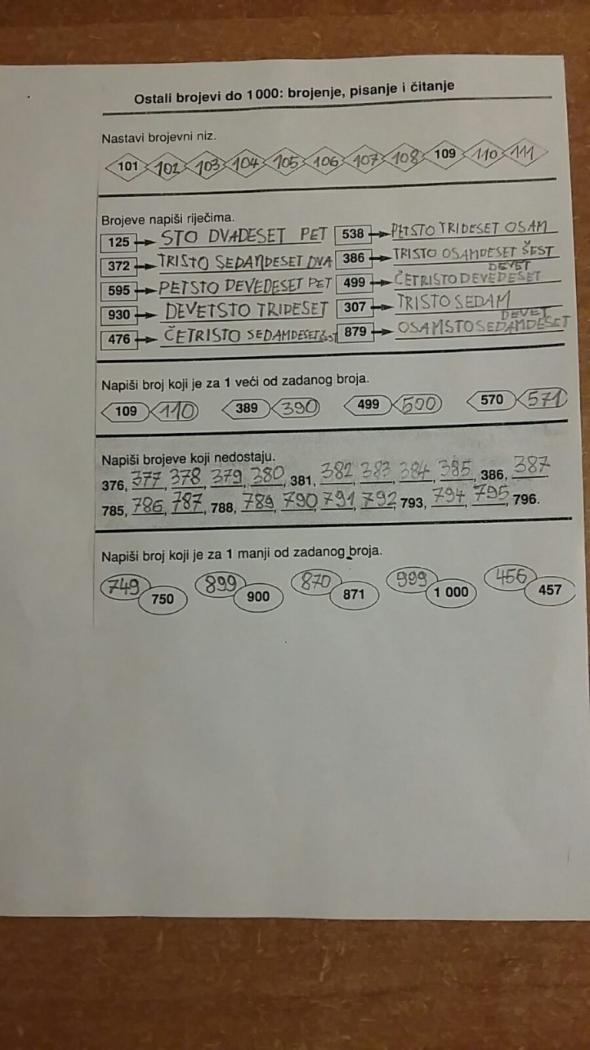 Ostali brojevi do 1000: brojenje, pisanje i čitanje
Nastavi brojevni niz.
101 102 103 104 105 106 107 108 109 110 111
Brojeve napiši riječima.
125 STO DVADESET PET 538 PETSTO TRIDESET OSAM
372 TRISTO SEDAMDESET DVA 386 TRISTO OSAMDESET ŠEST
595 PETSTO DEVEDESET PET 499 ČETRISTO DEVEDESET DEVET
930 DEVETSTO TRIDESET 307 TRISTO SEDAM
476 ČETRISTO SEDAMDESET ŠEST 879 OSAMSTO SEDAMDESET DEVET
Napiši broj koji je za 1 veći od zadanog broja.
109 110 389 390 499 500 570 571
Napiši brojeve koji nedostaju.
376, 377, 378, 379, 380, 381, 382, 383, 384, 385, 386, 387
785, 786, 787, 788, 789, 790, 791, 792, 793, 794, 795, 796.
Napiši broj koji je za 1 manji od zadanog broja.
749 899 870 999 456
750 900 871 1 000 457